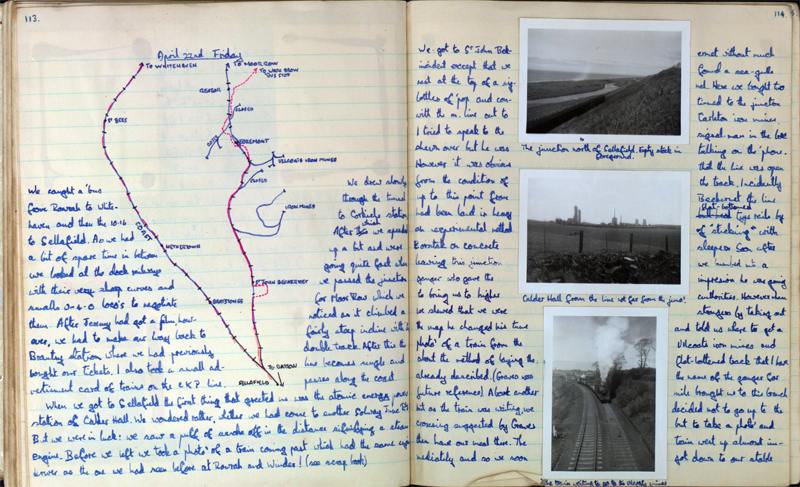 113.
April 22nd Friday
TO WHITEHAVEN
TO MOOR ROW
TO WATH BROW
BUS STOP
ST BEES
EGREMONT
ULLCOATS IRON MINES
IRON MINES
COAST
NETHERTOWN
BRAYSTONES
ST JOHN BECKERMET
SELLAFIELD
TO CARSON
We caught a 'bus
from Rowrah to White-
haven and then the 10.16
to Sellafield. As we had
a bit of spare time in between
we looked at the dock railways
with their very sharp curves and
small 0-4-0 loco's to negotiate
them. After Jeremy had got a film, how-
ever, we had to make our way back to
Bransty station where we had previously
bought our tickets. I also took a small ad-
vertisement card of trains on the C.K.P. line.
We drew slowly
through the tunnel
to Corkicle station
After this we speeded
up a bit and were
going quite fast when
we passed the junction
for Moor Row which we
noticed as it climbed a
fairly steep incline with a
double track. After this the
line becomes single and
passes along the coast
When we got to Sellafield the first thing that greeted us was the atomic energy power
station of Calder Hall. We wondered rather, whether we had come to another Solway Junc. Rly
But we were in luck: we saw a puff of smoke off in the distance signifying a steam
engine. Before we left we took a photo' of a train coming past which had the same
as the one we had seen before at Rowrah and Winder! (see scrap book)
114.
We got to St John Bek
incident except that we
rest at the top of a sig-
bottles of 'pop and con-
with the m. line out to
I tried to speak to the
down over but he was
However it was obvious
from the condition of
up to this point from
had been laid in heavy
an experimental method
on concrete
leaving this junction
ganger who gave the
to bring us to higher
we showed that we were
the map he changed his tune
photo' of a train from the
about the method of laying the
already described. (Graves was
future reference) About another
bit as the train was waiting we
crossing suggested by Graves
then have our meal there. The
mediately and so we soon
The junction north of Sellafield. Empty stock in
foreground.
Calder Hall from the line not far from the junc!
The train waiting to go to the Ullcoats mines
ermet without much
found a sea-gulls
nal. Here we bought two
tinued to the junction
iron mines.
signal-man in the box
talking on the 'phone.
that the line was open
the track. Incidently
Beckermet the line
flat-bottomed
type rails by
of "sticking" with
sleepers. Soon after
we bumped into a
impression he was going
authorities. However when
strangers by taking out
and told us where to get a
Ullcoats iron mines and
flat-bottomed track that I have
the name of the ganger for
mile brought us to the branch
decided not to go up to the
but to take a photo' and
train went up almost im-
got down to our